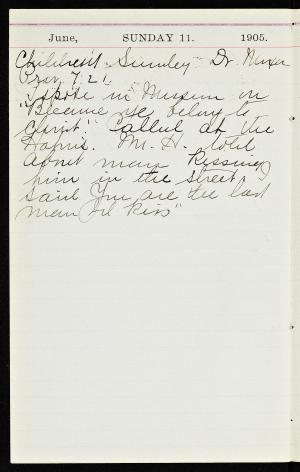 June, SUNDAY 11. 1905.
Children's Sunday - Dr. Mixer
Prov 7.21.
I spoke in Mission on
"Because ye belong to
Christ." Called at the
Mr. H. told
about man Kissing
him in the street, I
said You are the last
man I'd kiss"